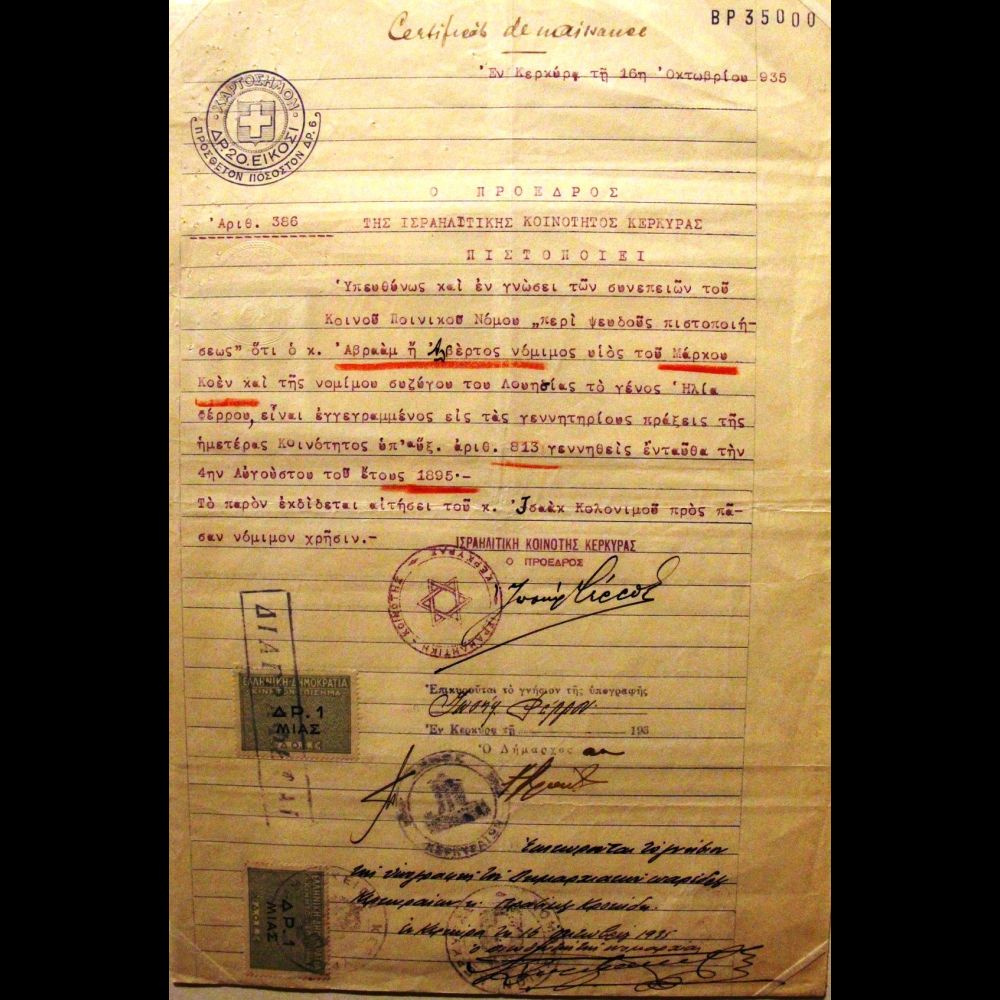 BP 35000
Certificat de naissance
Ἐν Κερκύρᾳ τῇ 16ῃ Ὀκτωβρίου 935
ΧΑΡΤΟΣΗΜΟΝ
ΔΡ. 20. ΕΙΚΟΣΙ
ΠΡΟΣΘΕΤΟΝ ΠΟΣΟΣΤΟΝ ΔΡ. 6
Ο ΠΡΟΕΔΡΟΣ
Ἀριθ. 386 ΤΗΣ ΙΣΡΑΗΛΙΤΙΚΗΣ ΚΟΙΝΟΤΗΤΟΣ ΚΕΡΚΥΡΑΣ
ΠΙΣΤΟΠΟΙΕΙ
Ὑπευθύνως καὶ ἐν γνώσει τῶν συνεπειῶν τοῦ
Κοινοῦ Ποινικοῦ Νόμου „περὶ ψευδοῦς πιστοποιή-
σεως" ὅτι ὁ κ. Ἀβραὰμ ἢ Ἀλβέρτος νόμιμος υἱὸς τοῦ Μάρκου
Κοὲν καὶ τῆς νομίμου συζύγου του Λουησίας τὸ γένος Ἠλία
Φέρρου, εἶναι ἐγγεγραμμένος εἰς τὰς γεννητηρίους πράξεις τῆς
ἡμετέρας Κοινότητος ὑπ' αὔξ. ἀριθ. 813 γεννηθεὶς ἐνταῦθα τὴν
4ην Αὐγούστου τοῦ ἔτους 1895.-
Τὸ παρὸν ἐκδίδεται αἰτήσει τοῦ κ. Ἰσαὰκ Κολονίμου πρὸς πᾶ-
σαν νόμιμον χρῆσιν.-
ΙΣΡΑΗΛΙΤΙΚΗ ΚΟΙΝΟΤΗΣ ΚΕΡΚΥΡΑΣ
Ο ΠΡΟΕΔΡΟΣ
ΙΣΡΑΗΛΙΤΙΚΗ ΚΟΙΝΟΤΗΣ ΚΕΡΚΥΡΑΣ
ΕΛΛΗΝΙΚΗ ΔΗΜΟΚΡΑΤΙΑ
ΚΙΝΗΤΟΝ ΕΠΙΣΗΜΑ
ΔΡ. 1
ΜΙΑΣ
Ἐπικυροῦται τὸ γνήσιον τῆς ὑπογραφῆς
Ἰωσὴφ Φέρρου
Ἐν Κερκύρᾳ τῇ 193
Ὁ Δήμαρχος
ΔΡ. 1
ΜΙΑΣ
Ἐπικυροῦται τὸ γνήσιον
τῆς ὑπογραφῆς τοῦ
Ἐν Κερκύρᾳ τῇ 16 Ὀκτωβρίου 1935